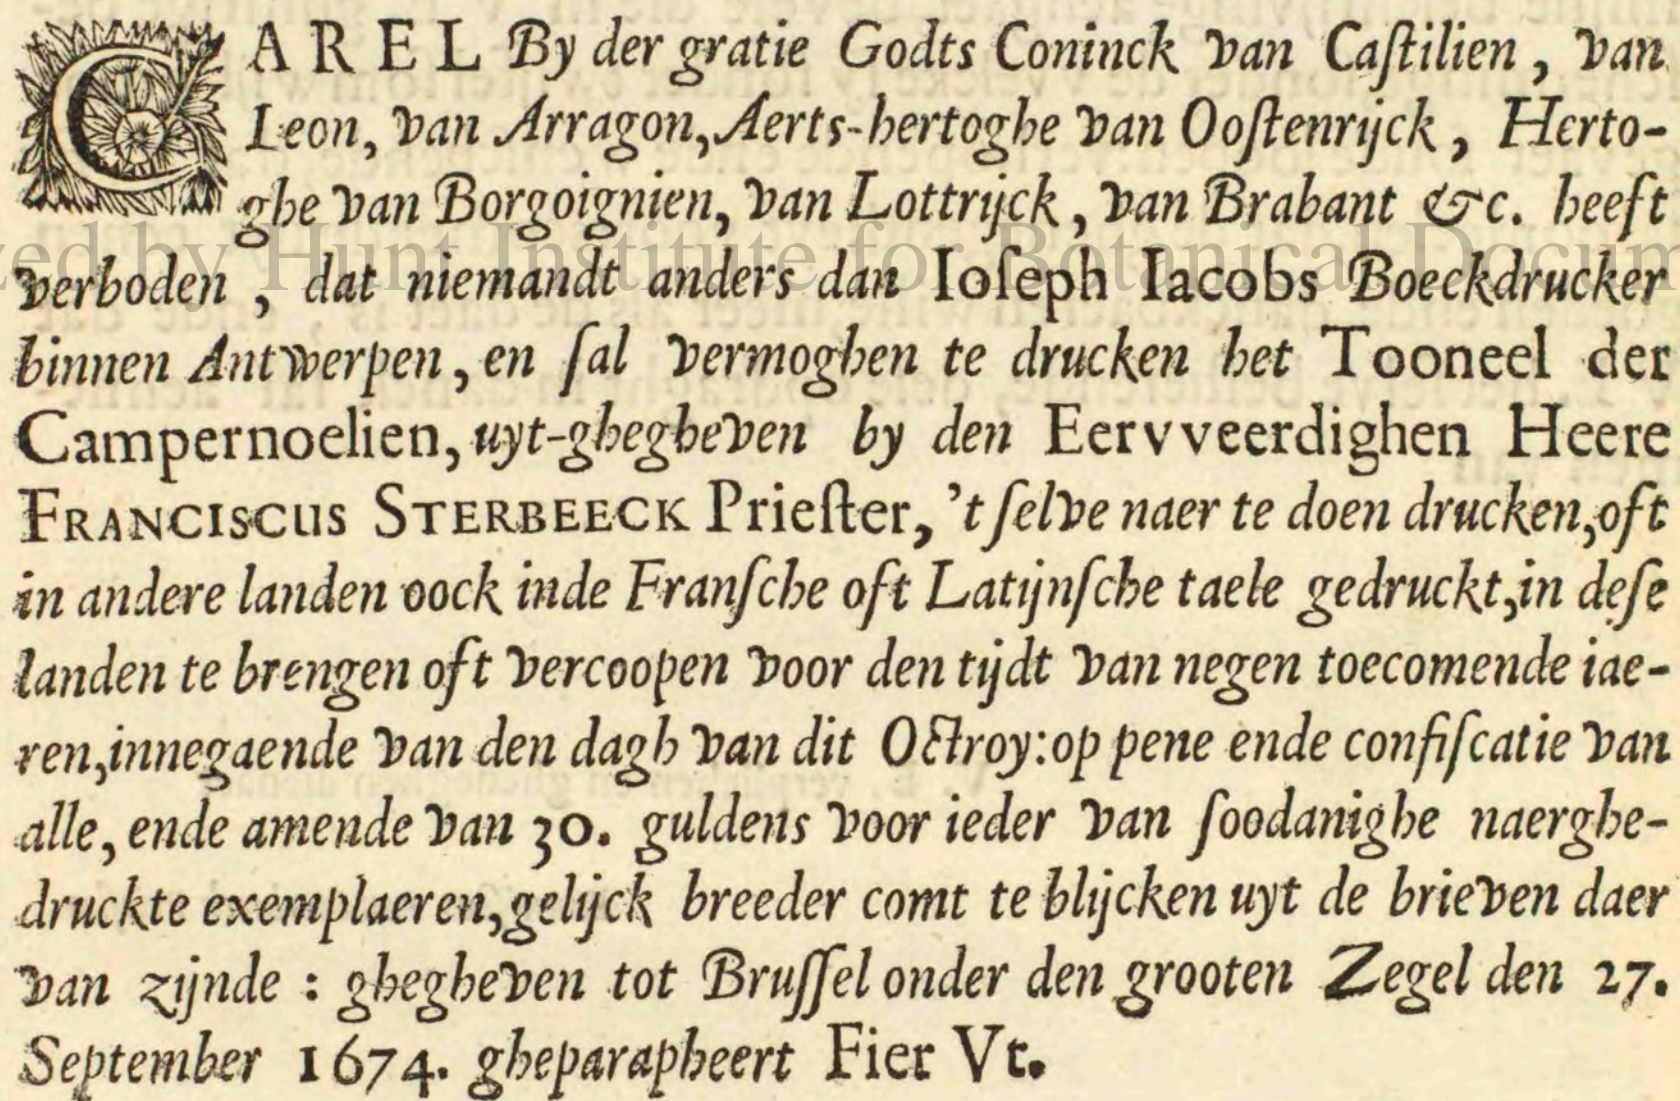 CAREL By der gratie Godts Coninck van Caſtilien, van
Leon, van Arragon, Aerts-hertoghe van Ooſtenrijck, Herto-
ghe van Borgoignien, van Lottrijck, van Brabant &c. heeft
zed by Hunt Institute for Botanical Docum
verboden, dat niemandt anders dan Ioſeph Iacobs Boeckdrucker
binnen Antwerpen, en ſal vermoghen te drucken het Tooneel der
Campernoelien, uyt-ghegheven by den Eervveerdighen Heere
FRANCISCUS STERBEECK Prieſter, 't ſelve naer te doen drucken, oft
in andere landen oock inde Franſche oft Latijnſche taele gedruckt, in deſe
landen te brengen oft vercoopen voor den tijdt van negen toecomende iae-
ren, innegaende van den dagh van dit Octroy: op pene ende confiſcatie van
alle, ende amende van 30. guldens voor ieder van ſoodanighe naerghe-
druckte exemplaeren, gelijck breeder comt te blijcken uyt de brieven daer
van zijnde : ghegheven tot Bruſſel onder den grooten Zegel den 27.
September 1674. gheparapheert Fier Vt.